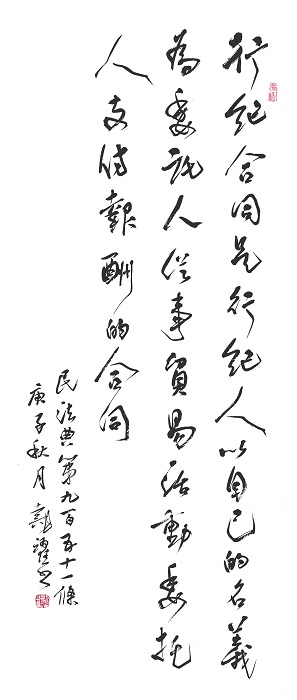 行纪合同是行纪人以自己的名義
為委託人從事貿易活動委托
人支付報酬的合同
民法典第九百五十一條
庚子秋月